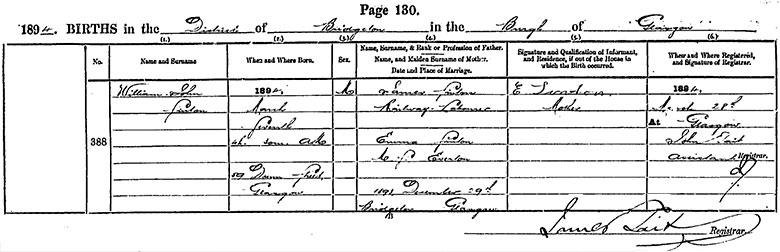 Page 130.
1894. BIRTHS in the District of Bridgeton in the Burgh of Glasgow
(1.) (2.) (3.) (4.) (5.) (6.)
No. Name and Surname When and Where Born. Sex. Name, Surname, & Rank or Profession of Father. Name, and Maiden Surname of Mother. Date and Place of Marriage. Signature and Qualification of Informant, and Residence, if out of the House in which the Birth occurred. When and Where Registered, and Signature of Registrar.
388
William John
1894,
March
Seventh
4h. A M
59 Street
Glasgow
M
James
Railway Labourer
Emma
M.S. Everton
1891 December 29th
Bridgeton Glasgow
E.
Mother
1894,
March 28th
At Glasgow
John Tait
Assistant Registrar.
James Tait Registrar.